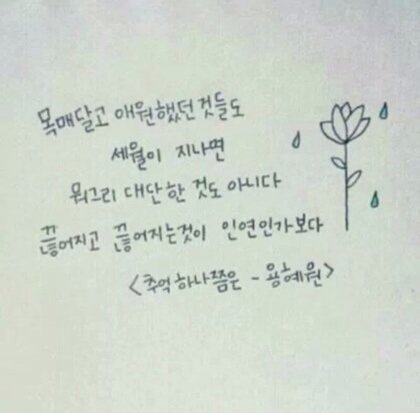 목매달고 애원했던것들도
세월이 지나면
뭐그리 대단한 것도 아니다
끊어지고 끊어지는것이 인연인가보다
<추억하나쯤은 - 용혜원>